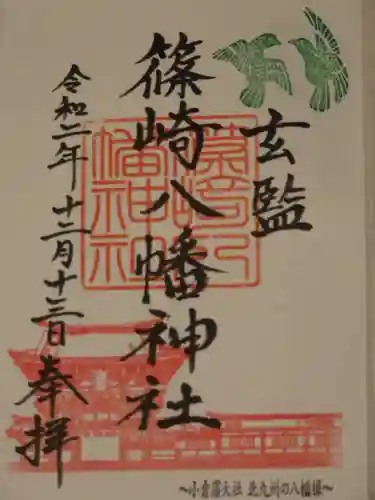 玄監
篠崎八幡神社
令和二年十二月十三日
奉拝
篠崎八
幡神社
～小倉藩大社 北九州の八幡様～